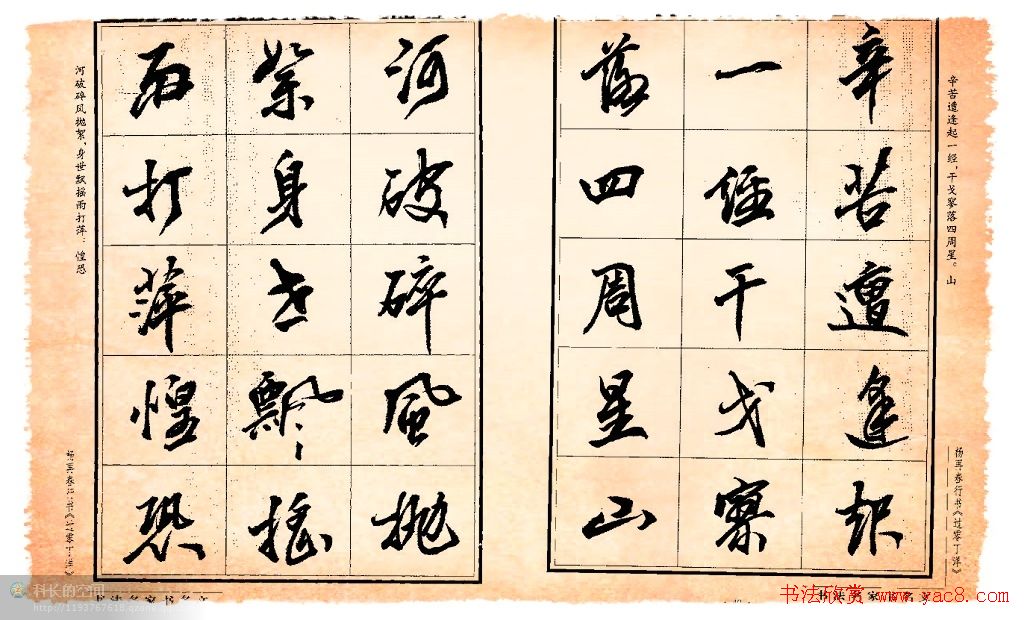 辛苦遭逢起一经,干戈寥落四周星。山
杨再春行书《过零丁洋》
辛苦遭逢起
一經干戈寥
落四周星山
河破碎風抛
絮身世飄搖
雨打萍惶恐
河破碎风抛絮,身世飘摇雨打萍:惶恐
杨再春行书《过零丁洋》
科长的空间
http://1193767618.qzone
书法欣赏 www.yac8.com